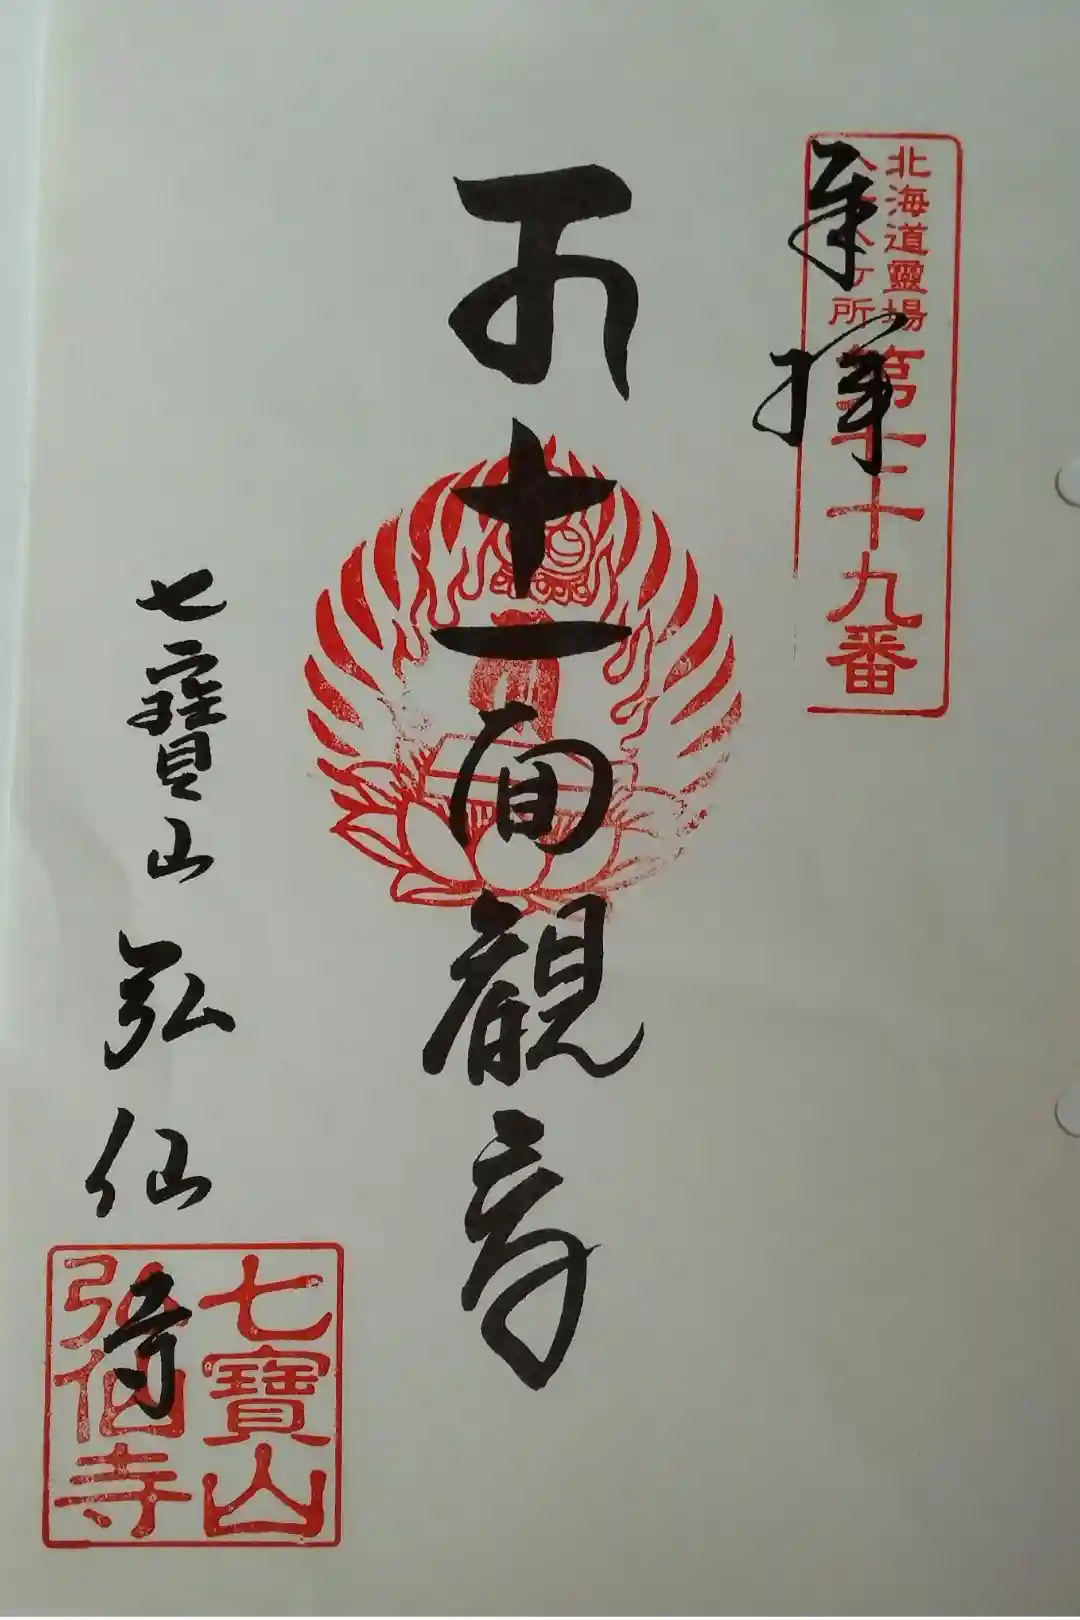 奉拝
北海道靈場
八十八ヶ所
十九番
十一面觀音
七寶山 弘仙寺
七寶山
弘仙寺